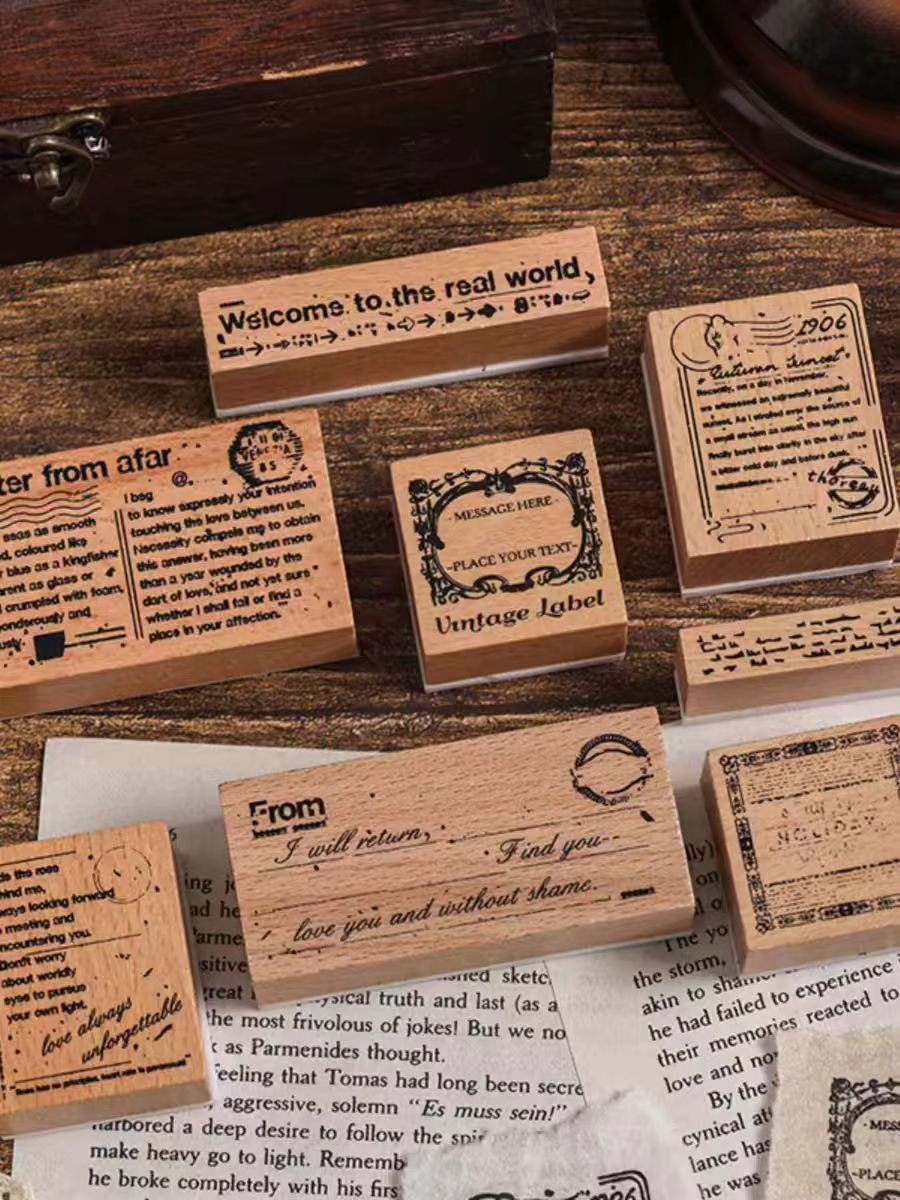 Welcome to the real world,
1906
"Autumn Sunset"
Recently, on a day in November,
we witnessed an extremely beautiful
sunset. As I strolled over the source of
a small stream as usual, the high sun
finally burst into clarity in the sky after
a bitter cold day and before dusk.
thoreau
ter from afar
VENEZIA
85
@
seas as smooth
d, coloured like
blue as a kingfisher
rent as glass or
crumpled with foam,
ponderously and
usly.
I beg
to know expressly your intention
touching the love between us.
Necessity compels me to obtain
this answer, having been more
than a year wounded by the
dart of love, and not yet sure
whether I shall fail or find a
place in your affection."
· MESSAGE HERE ·
-PLACE YOUR TEXT-
Vintage Label
From
I will return,
Find you--
love you and without shame.
HOLIDAY
ds the rose
hind me,
ways looking forward
meeting and
ncountering you.
Don't worry
about worldly
eyes to pursue
your own light.
love always
unforgettable
6
ing
ad he
Parme
sitive
great
physical truth and last (as a
the most frivolous of jokes! But we no
k as Parmenides thought.
feeling that Tomas had long been secre
aggressive, solemn "Es muss sein!"
harbored a deep desire to follow the spir
make heavy go to light. Rememb
he broke completely with his firs
lly)
on
The yo
the storm,
akin to
he had failed to experience
their memories reacted to
love and no
By the
cynical at
lance has
he was
MESS
-PLACE
1906